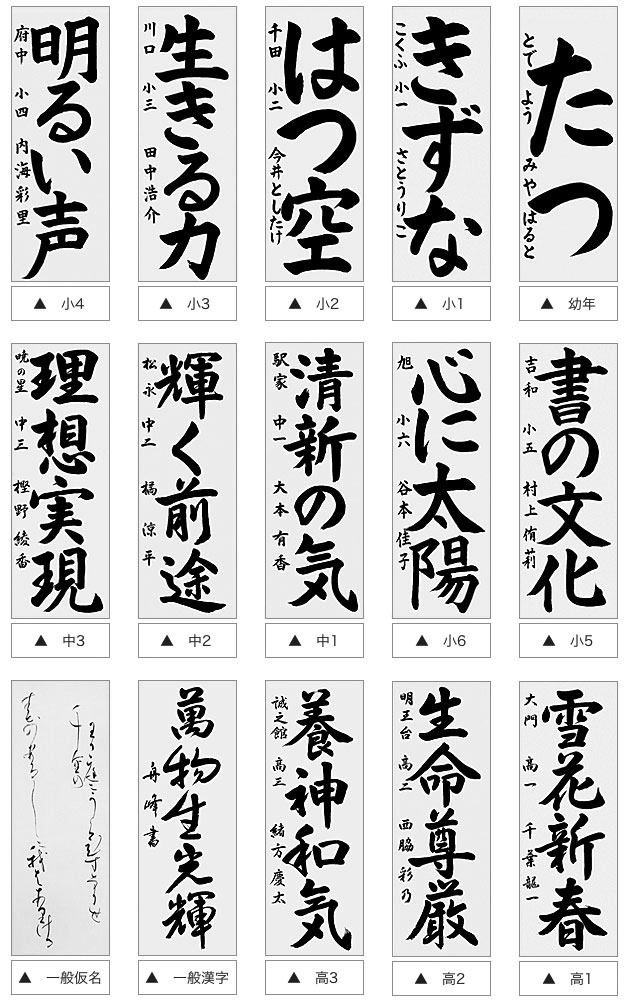 たつ
とで よう みや はると
▲ 幼年
きずな
こくふ 小一 さとうりこ
▲ 小1
はつ空
千田 小二 今井としたけ
▲ 小2
生きる力
川口 小三 田中浩介
▲ 小3
明るい声
府中 小四 内海彩里
▲ 小4
書の文化
吉和 小五 村上侑莉
▲ 小5
心に太陽
旭 小六 谷本佳子
▲ 小6
清新の気
駅家 中一 大本有香
▲ 中1
輝く前途
松永 中二 橘涼平
▲ 中2
理想実現
暁の星 中三 樫野綾香
▲ 中3
雪花新春
大門 高一 千葉龍一
▲ 高1
生命尊厳
明王台 高二 西脇彩乃
▲ 高2
養神和気
誠之館 高三 緒方慶太
▲ 高3
萬物生光輝
舟峰書
▲ 一般漢字
▲ 一般仮名